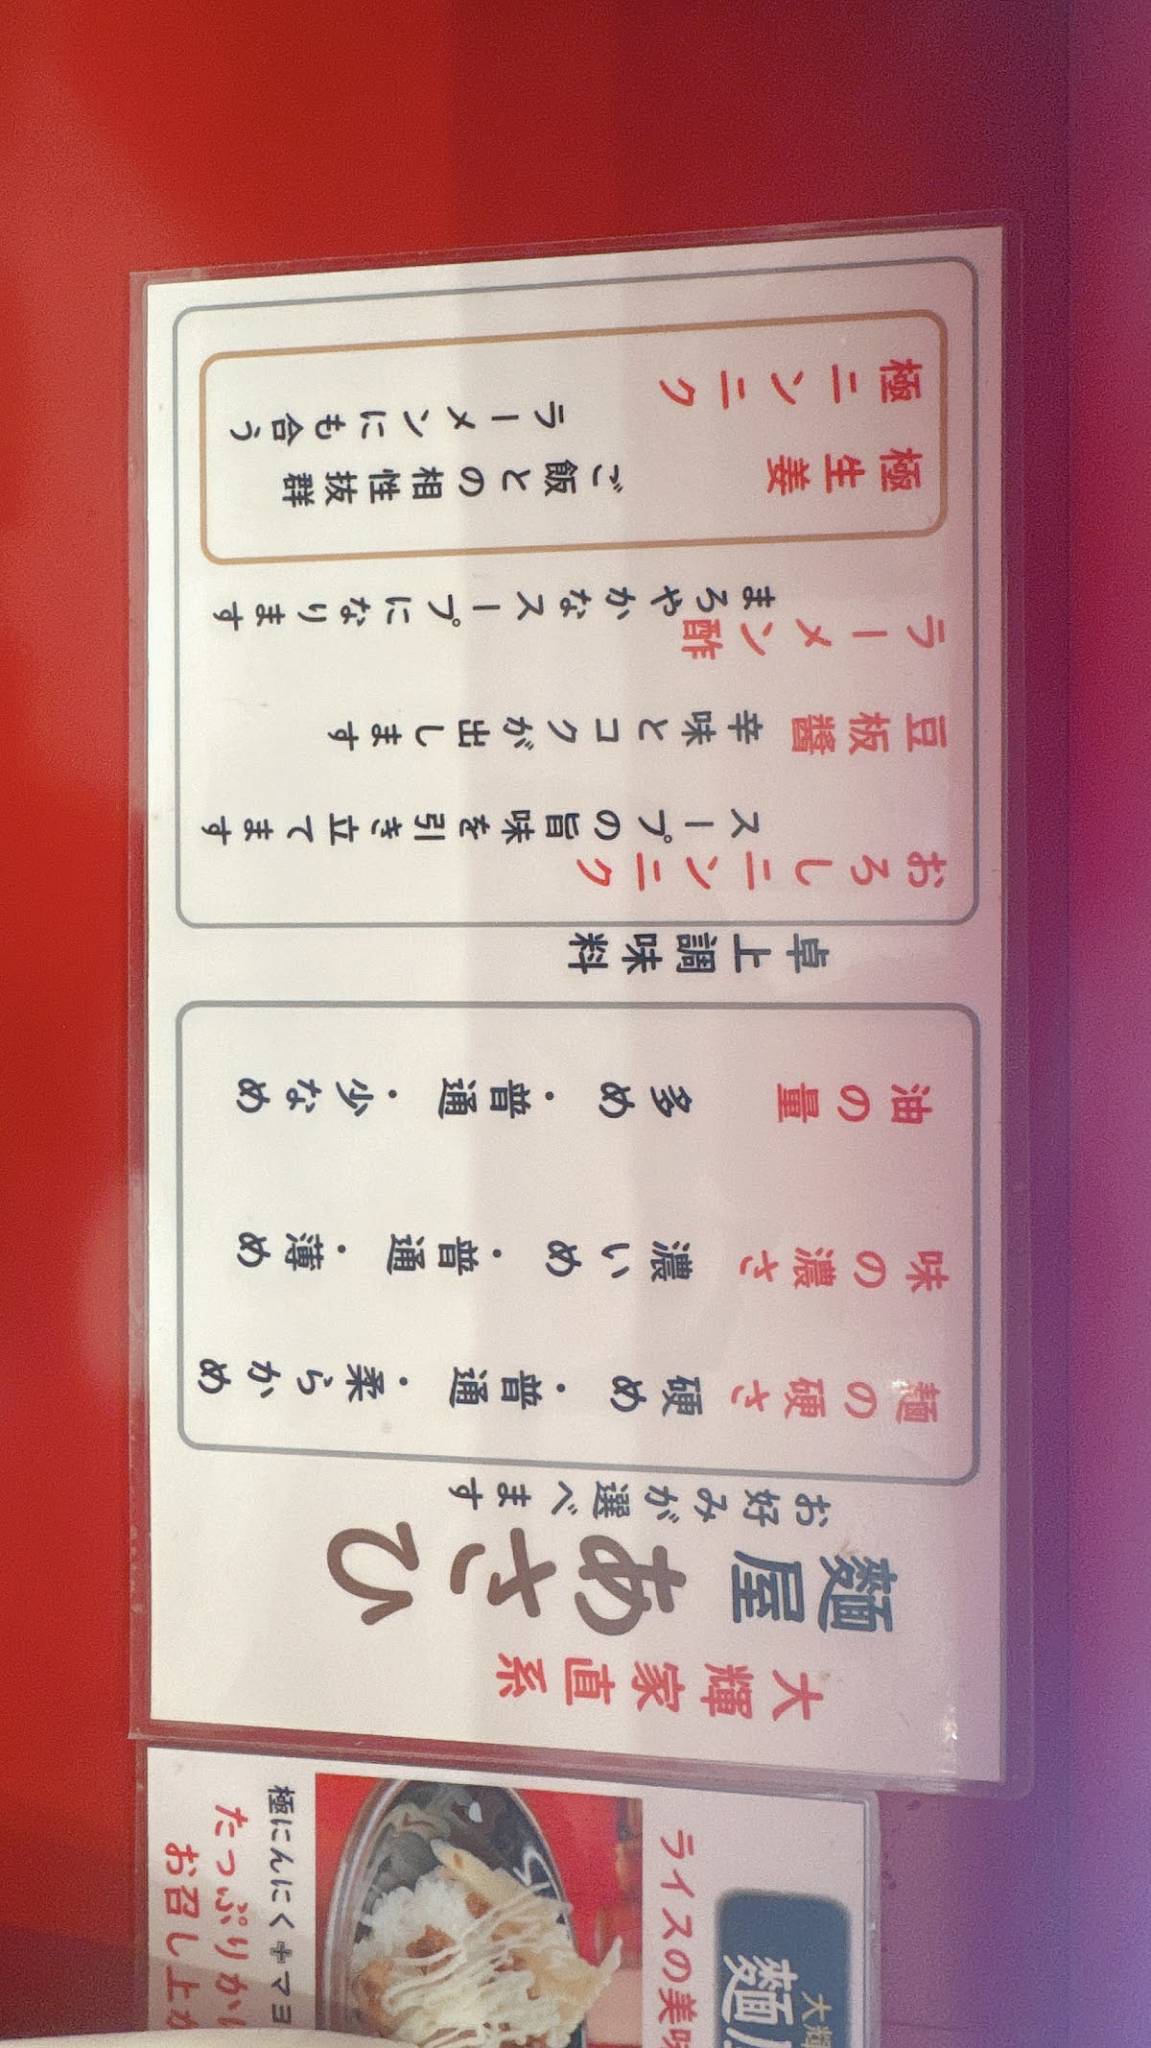 大輝家直系
麺屋 あさひ
お好みが選べます
麺の硬さ 硬め・普通・柔らかめ
味の濃さ 濃いめ・普通・薄め
油の量 多め・普通・少なめ
卓上調味料
おろしニンニク
スープの旨味を引き立てます
豆板醬 辛味とコクが出します
ラーメン酢
まろやかなスープになります
極生姜 ご飯との相性抜群
極ニンニク ラーメンにも合う
大輝
麺
ライスの美味
極にんにく+マヨ
たっぷりか
お召し上が